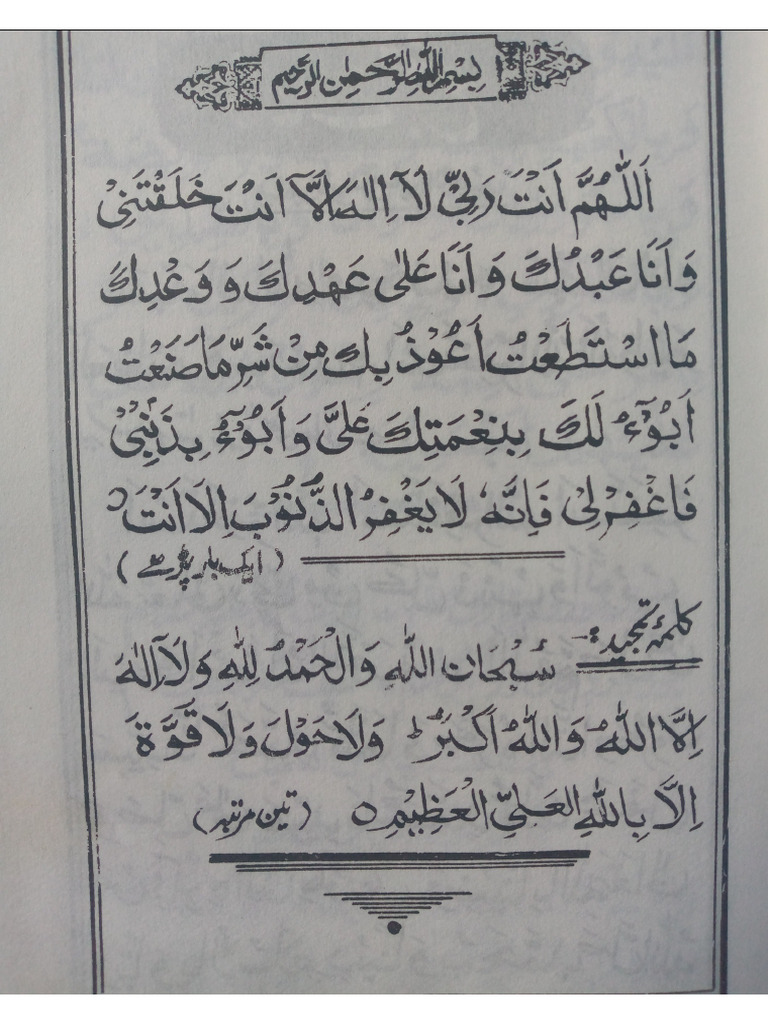 بِسْمِ اللهِ الرَّحْمٰنِ الرَّحِيْمِ
اَللّٰهُمَّ اَنْتَ رَبِّيْ لَآ اِلٰهَ اِلَّآ اَنْتَ خَلَقْتَنِيْ
وَاَنَا عَبْدُكَ وَاَنَا عَلٰى عَهْدِكَ وَوَعْدِكَ
مَا اسْتَطَعْتُ اَعُوْذُ بِكَ مِنْ شَرِّ مَا صَنَعْتُ
اَبُوْٓءُ لَكَ بِنِعْمَتِكَ عَلَيَّ وَاَبُوْٓءُ بِذَنْۢبِيْ
فَاغْفِرْلِيْ فَاِنَّهٗ لَا يَغْفِرُ الذُّنُوْبَ اِلَّا اَنْتَ ○
(ایک بار پڑھے)
کلمۂ تمجید:- سُبْحَانَ اللهِ وَالْحَمْدُ لِلّٰهِ وَلَآ اِلٰهَ
اِلَّا اللهُ وَاللهُ اَكْبَرُ ؕ وَلَا حَوْلَ وَلَا قُوَّةَ
اِلَّا بِاللهِ الْعَلِيِّ الْعَظِيْمِ ○ (تین مرتبہ)